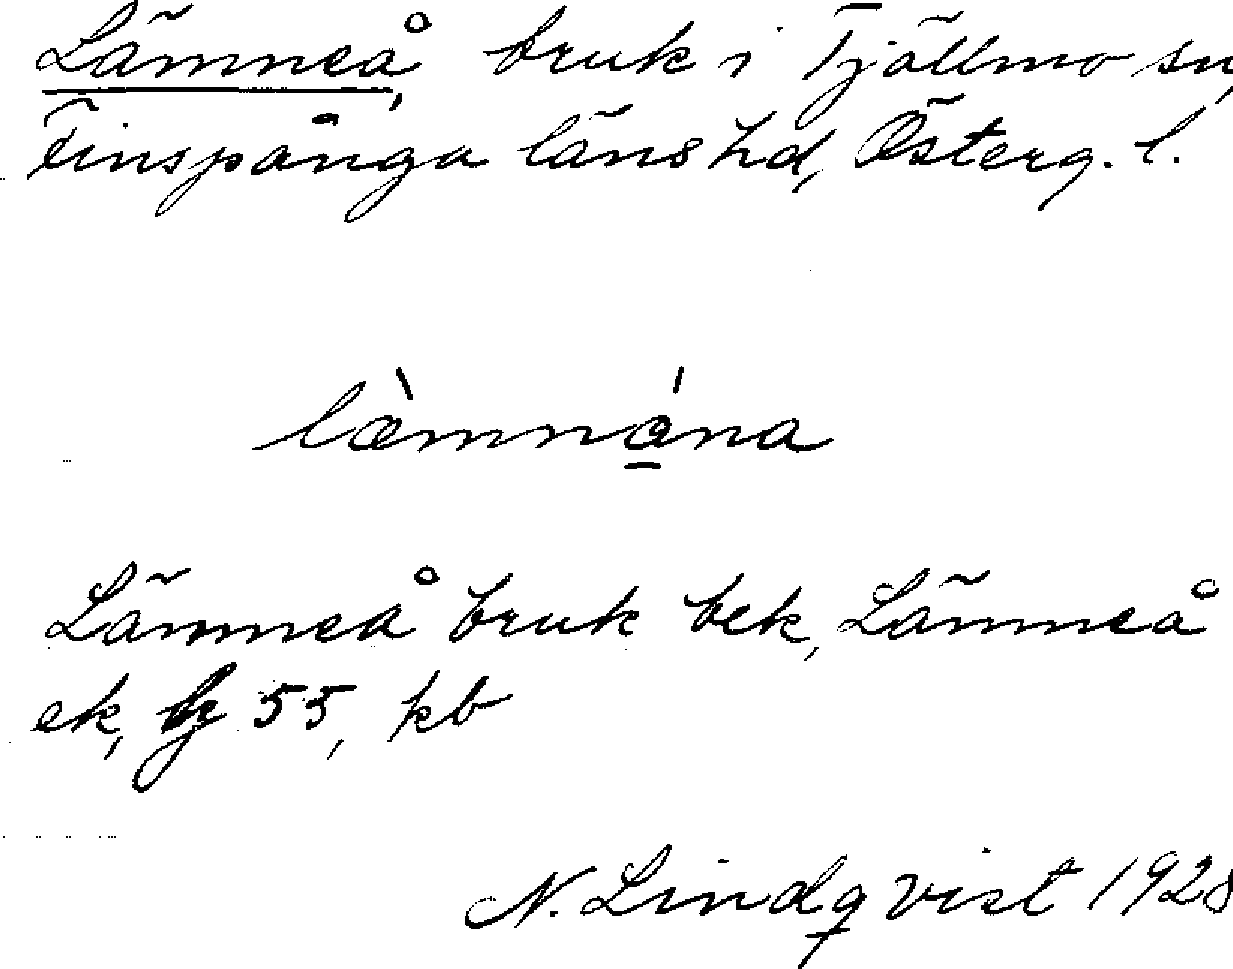 Lämneå, bruk i Tjällmo sn,
Finspånga läns hd, Österg. l.
læ̀mnǻ̱na
Lämneå bruk bek, Lämneå
ek, 55, kb
N. Lindqvist 1928